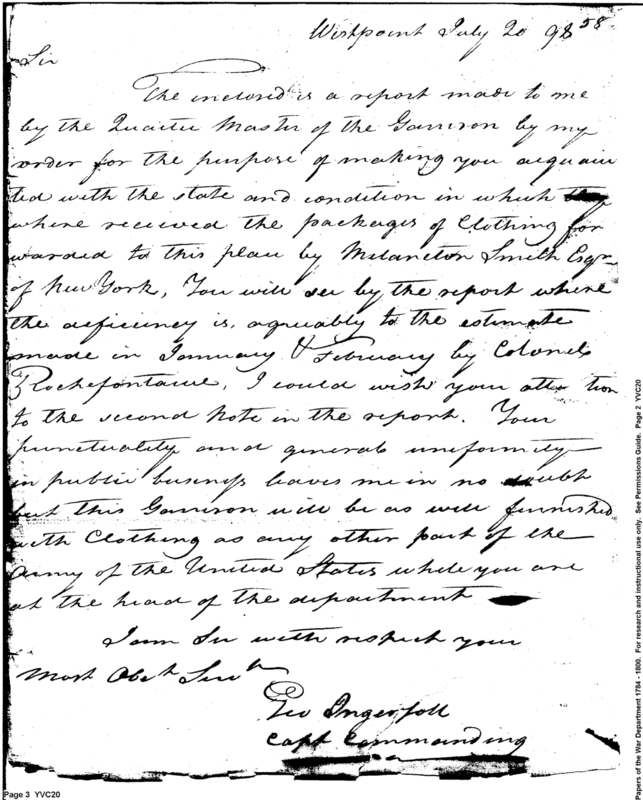 Westpoint July 20 98 58
Sir
The inclosed is a report made to me
by the Quarter Master of the Garrison by my
order for the purpose of making you acquain
ted with the state and condition in which
where received the packages of Clothing for
warded to this place by Melancton Smith Esqr
of New York, You will see by the report where
the deficiency is, agreably to the estimate
made in January & February by Colonel
Rochefontaine, I could wish your atten tion
to the second Note in the report. Your
punctuality and general uniformity
in public business leaves me in no doubt
but this Garrison will be as well furnished
with Clothing as any other part of the
Army of the United States while you are
at the head of the department
I am Sir with respect your
Most Obet Servt
Geo Ingersoll
Capt Commanding
Page 3 YVC20
Papers of the War Department 1784 - 1800. For research and instructional use only. See Permissions Guide. Page 2 YVC20